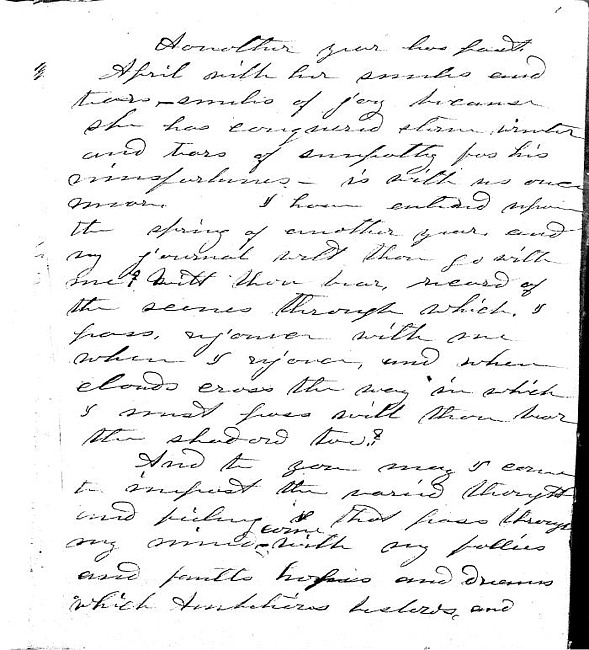 Aonother year has past.
April with her smiles and
tears - smiles of joy because
she has conquered stern winter
and tears of sympathy for his
misfortunes - is with us once
more. I have entered upon
the spring of another year, and
my journal wilt thou go with
me? Wilt thou bear, record of
the scenes through which, I
pass, rejoice with me
when I rejoice, and when
clouds cross the way in which
I must pass wilt thou bear
the shadow too?
And to you may I come
to impart the varied thoughts
and feelings that pass through
my mind, come with my follies
and faults hopes and dreams
which Ambitions bestows, and